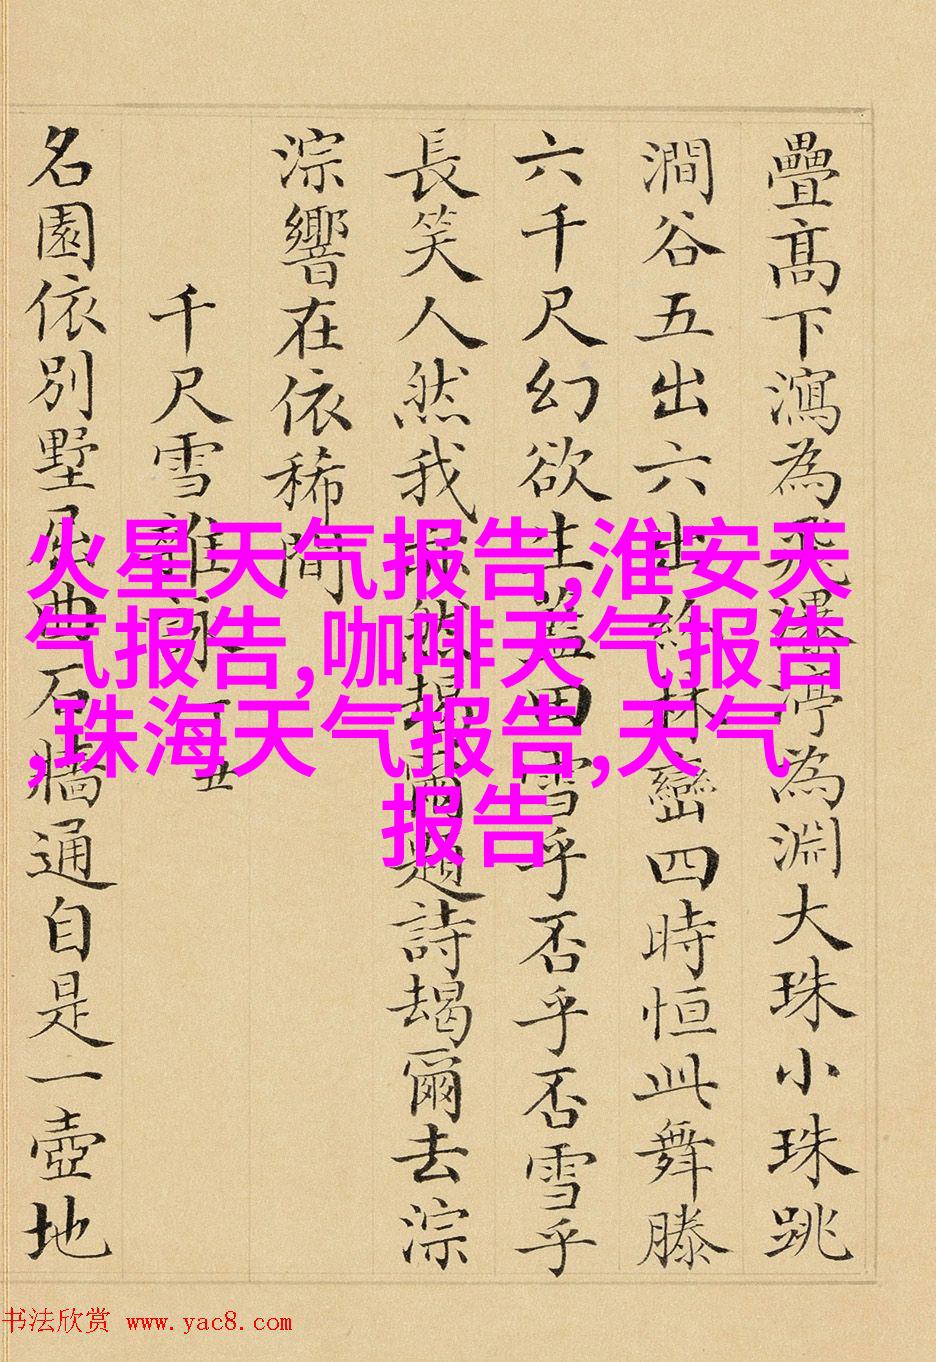 疊高下瀉為飛瀑渟為淵大珠小珠跳
澗谷五出六出紛林巒四時恒此舞滕
六千尺幻欲生蓋田雪乎否乎否雪乎
長笑人然我然朅爾題詩朅爾去淙
淙響在依稀間
千尺雪雜詠
名園依別墅屈曲石牆通自是一壺地
火星天气报告,淮安天
气报告,咖啡天气报告
,珠海天气报告,天气
报告
书法欣赏 www.yac8.com